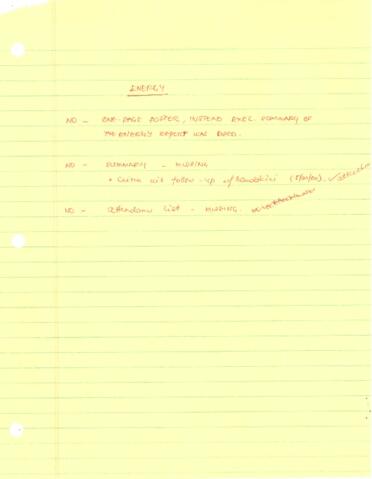 ENERGY
NO - ONE-PAGE POSTER, INSTEAD EXEC. SUMMARY OF
THE ENERGY REPORT WAS USED.
NO - SUMMARY - MISSING
• will follow-up w/
NO - Attendance List - MISSING.